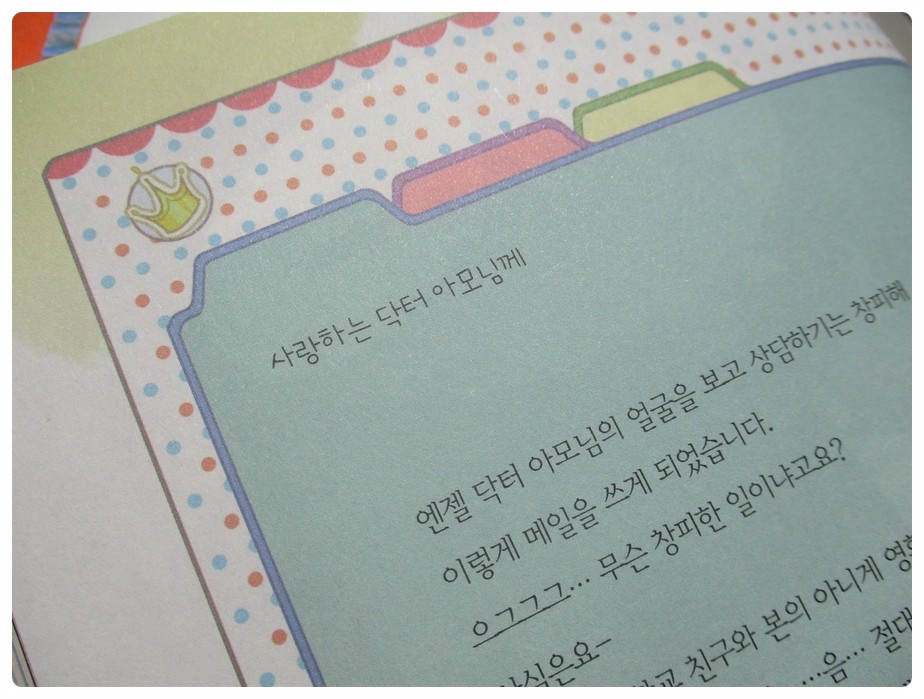 사랑하는 닥터 아모님께
엔젤 닥터 아모님의 얼굴을 보고 상담하기는 창피해
이렇게 메일을 쓰게 되었습니다.
으그그그… 무슨 창피한 일이냐고요?
친구와 본의 아니게
…음… 절대